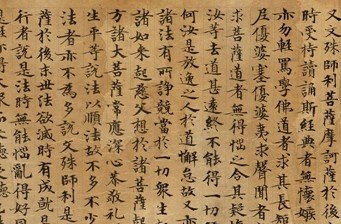 又文殊師利菩薩摩訶薩於後
時受持讀誦斯經典者無懷嫉
亦勿輕罵學佛道者求其長
尼優婆塞優婆夷求聲聞
求菩薩道者無得惱之令其疑
汝等去道甚遠終不能得一切
何汝是放逸之人於道懈怠故又
諸法有所諍競當於一切衆生
諸如來起慈父想於諸菩薩起
方諸大菩薩常應深心恭敬礼
生平等說法以順法故不多不少
法者亦不為多說文殊師利是
薩於後末世法欲滅時有成就是
行者說是法時無能惱亂得好